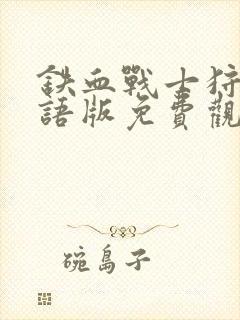 鉄血戰士狩
語版免費觀
碗島子